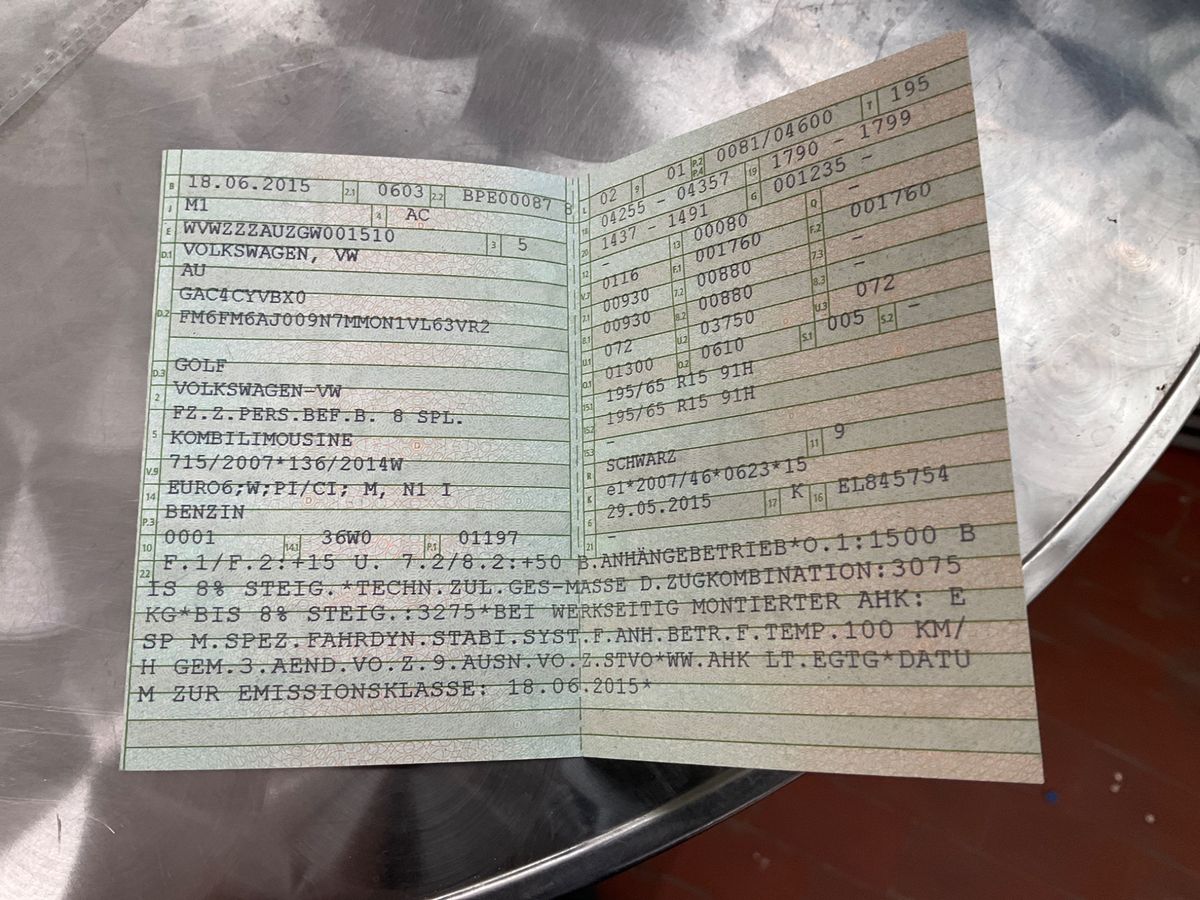 B 18.06.2015 2.1 0603 2.2 BPE00087 8
J M1 4 AC
E WVWZZZAUZGW001510 3 5
D.1 VOLKSWAGEN, VW
AU
D.2 GAC4CYVBX0
FM6FM6AJ009N7MMON1VL63VR2
D.3 GOLF
2 VOLKSWAGEN-VW
5 FZ.Z.PERS.BEF.B. 8 SPL.
KOMBILIMOUSINE
V.9 715/2007*136/2014W
14 EURO6;W;PI/CI; M, N1 I
P.3 BENZIN
10 0001 14.1 36W0 P.1 01197
L 02 9 01 P.2 P.4 0081/04600 T 195
18 04255 - 04357 19 1790 - 1799
20 1437 - 1491 G 001235 -
12 - 13 00080 Q -
V.7 0116 F.1 001760 F.2 001760
7.1 00930 7.2 00880 7.3 -
8.1 00930 8.2 00880 8.3 -
U.1 072 U.2 03750 U.3 072
O.1 01300 O.2 0610 S.1 005 S.2 -
15.1 195/65 R15 91H
15.2 195/65 R15 91H
15.3 -
R SCHWARZ 11 9
K e1*2007/46*0623*15
6 29.05.2015 17 K 16 EL845754
21 -
22 F.1/F.2:+15 U. 7.2/8.2:+50 B.ANHÄNGEBETRIEB*O.1:1500 B
IS 8% STEIG.*TECHN.ZUL.GES-MASSE D.ZUGKOMBINATION:3075
KG*BIS 8% STEIG.:3275*BEI WERKSEITIG MONTIERTER AHK: E
SP M.SPEZ.FAHRDYN.STABI.SYST.F.ANH.BETR.F.TEMP.100 KM/
H GEM.3.AEND.VO.Z.9.AUSN.VO.Z.STVO*WW.AHK LT.EGTG*DATU
M ZUR EMISSIONSKLASSE: 18.06.2015*